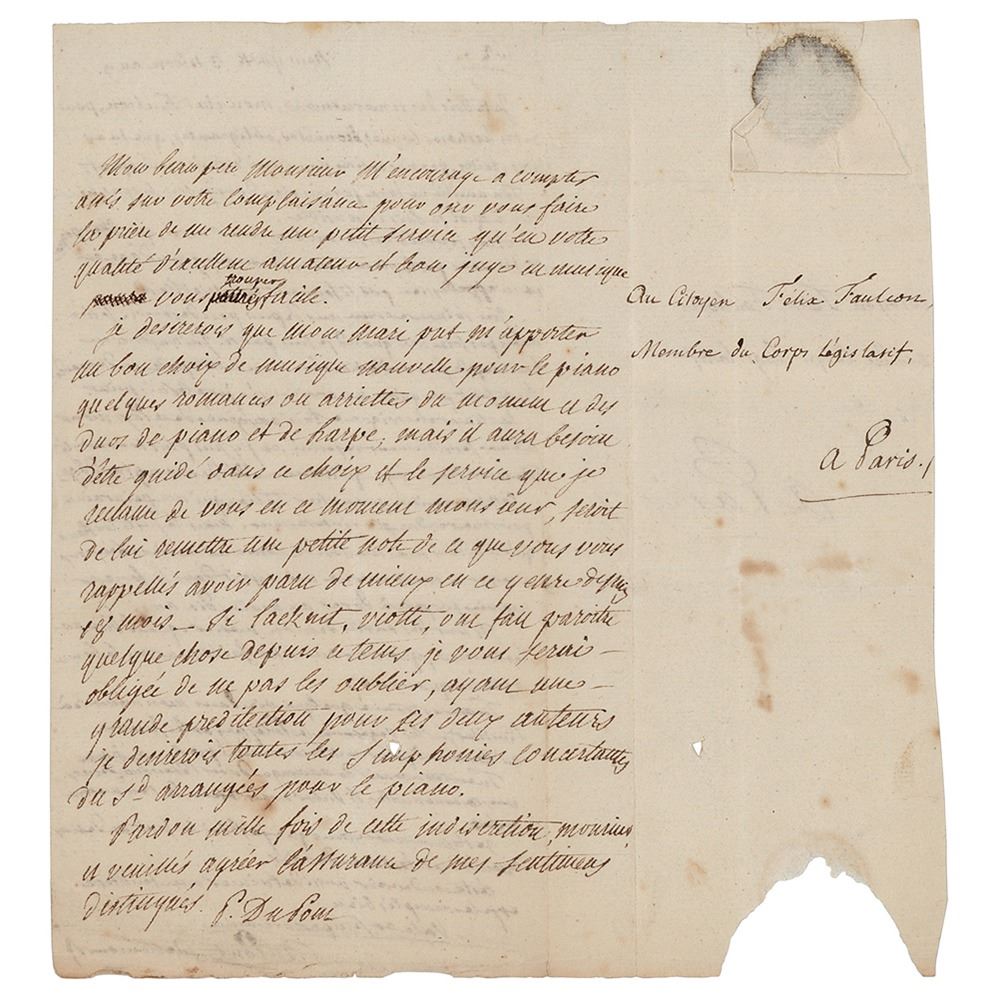 Mon beau pere Monsieur M'encourage a compter
assés sur votre Complaisance pour oser vous faire
la prière de me rendre un petit service qu'en votre
qualité d'exellent amateur et bon juge en musique
vous trouverés facile.
je desirerois que mon mari put m'apporter
un bon choix de musique nouvelle pour le piano
quelques romances ou arriettes du moment et des
duos de piano et de harpe, mais il aura besoin
d'être guidé dans ce choix et le service que je
reclame de vous en ce moment monsieur, seroit
de lui remettre une petite note de ce que vous vous
rappellés avoir paru de mieux en ce genre depuis
mois _ Si lacknit, viotti, ont fait paroitre
quelque chose depuis ce tems je vous serai –
obligée de ne pas les oublier, ayant une –
grande predilection pour ces deux auteurs
je desirerois toutes les Simphonies Concertantes
du Sd arrangées pour le piano.
Pardon mille fois de cette indiscretion, monsieur
et veuillés agréer l'assurance de mes sentimens
distingués. P. DuPont
Au Citoyen Félix Faulcon,
Membre du Corps législatif,
A Paris. /